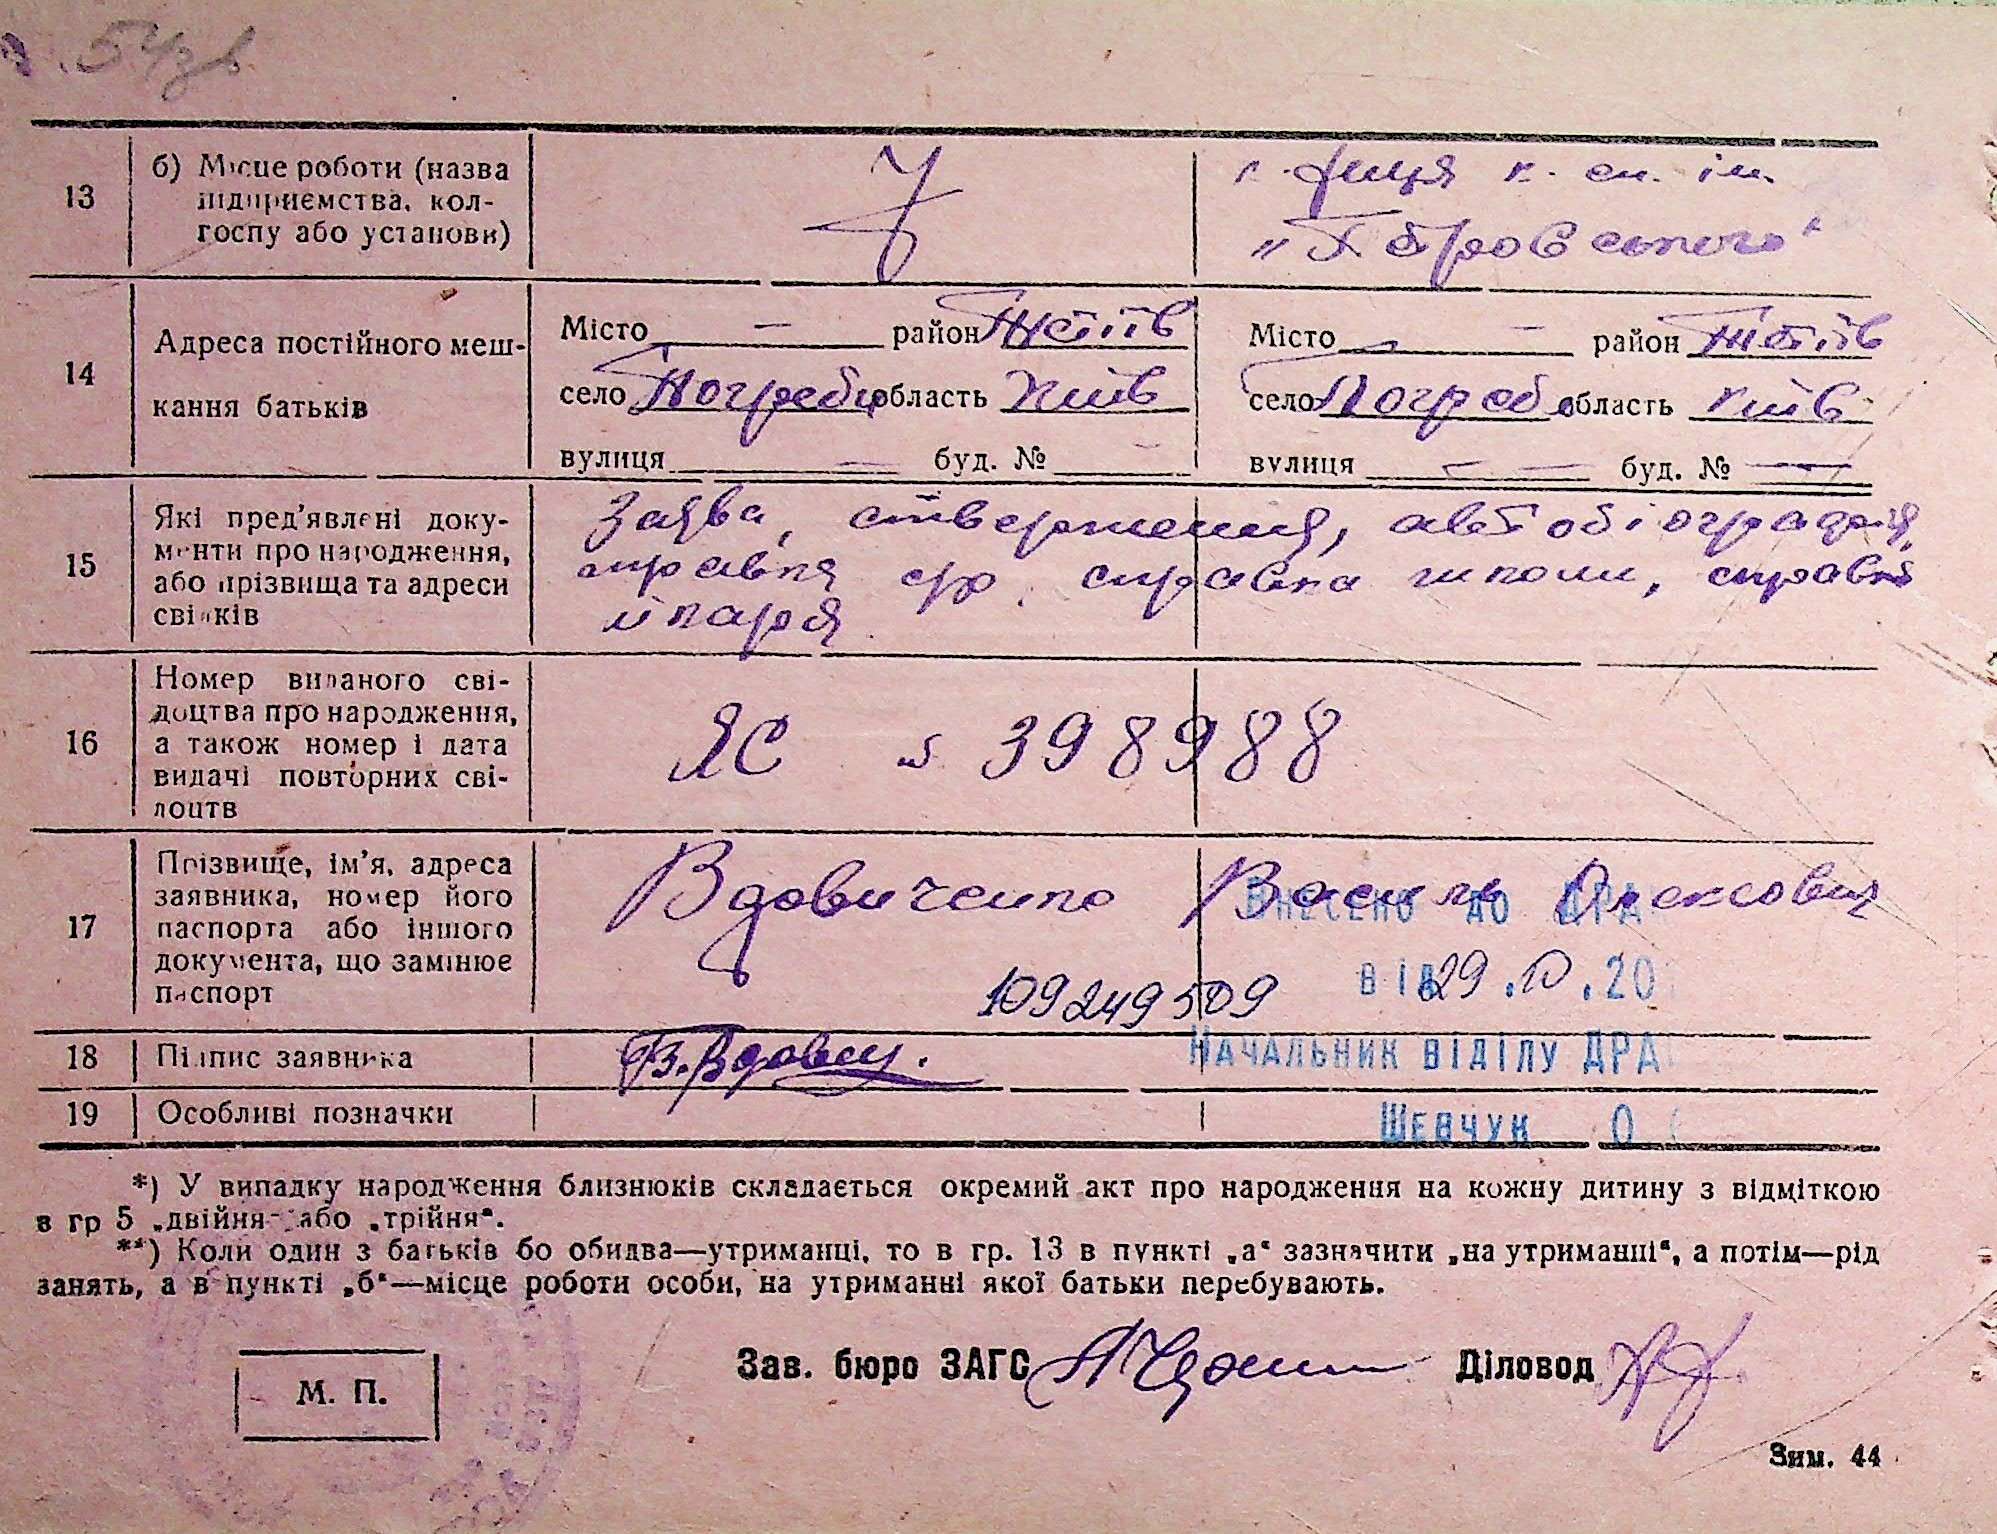 13
б) Місце роботи (назва
підприємства, кол-
госпу або установи)
к. сп. ім.
14
Адреса постійного меш-
кання батьків
Місто — район Тетіїв
село Погреби область Київ
вулиця — буд. № —
Місто — район Тетіїв
село Погреби область Київ
вулиця — буд. № —
15
Які пред'явлені доку-
менти про народження,
або прізвища та адреси
свідків
Заява, ствержения, автобіографія,
справка справка школи, справка
лікаря
16
Номер виданого сві-
доцтва про народження,
а також номер і дата
видачі повторних сві-
доцтв
ЯС 398988
17
Прізвище, ім'я, адреса
заявника, номер його
паспорта або іншого
документа, що замінює
паспорт
Вдовиченко Василь Олексович
ВНЕСЕНО ДО ДРА
109249509
ВІД 29.10.20
18
Підпис заявника
В. Вдович.
НАЧАЛЬНИК ВІДІЛУ ДРА
19
Особливі позначки
ШЕВЧУК О
*) У випадку народження близнюків складається окремий акт про народження на кожну дитину з відміткою
в гр 5 „двійня" або „трійня".
**) Коли один з батьків бо обидва—утриманці, то в гр. 13 в пункті „а" зазначити „на утриманні", а потім—рід
занять, а в пункті „б"—місце роботи особи, на утриманні якої батьки перебувають.
М. П.
Зав. бюро ЗАГС
Діловод
Зим. 44